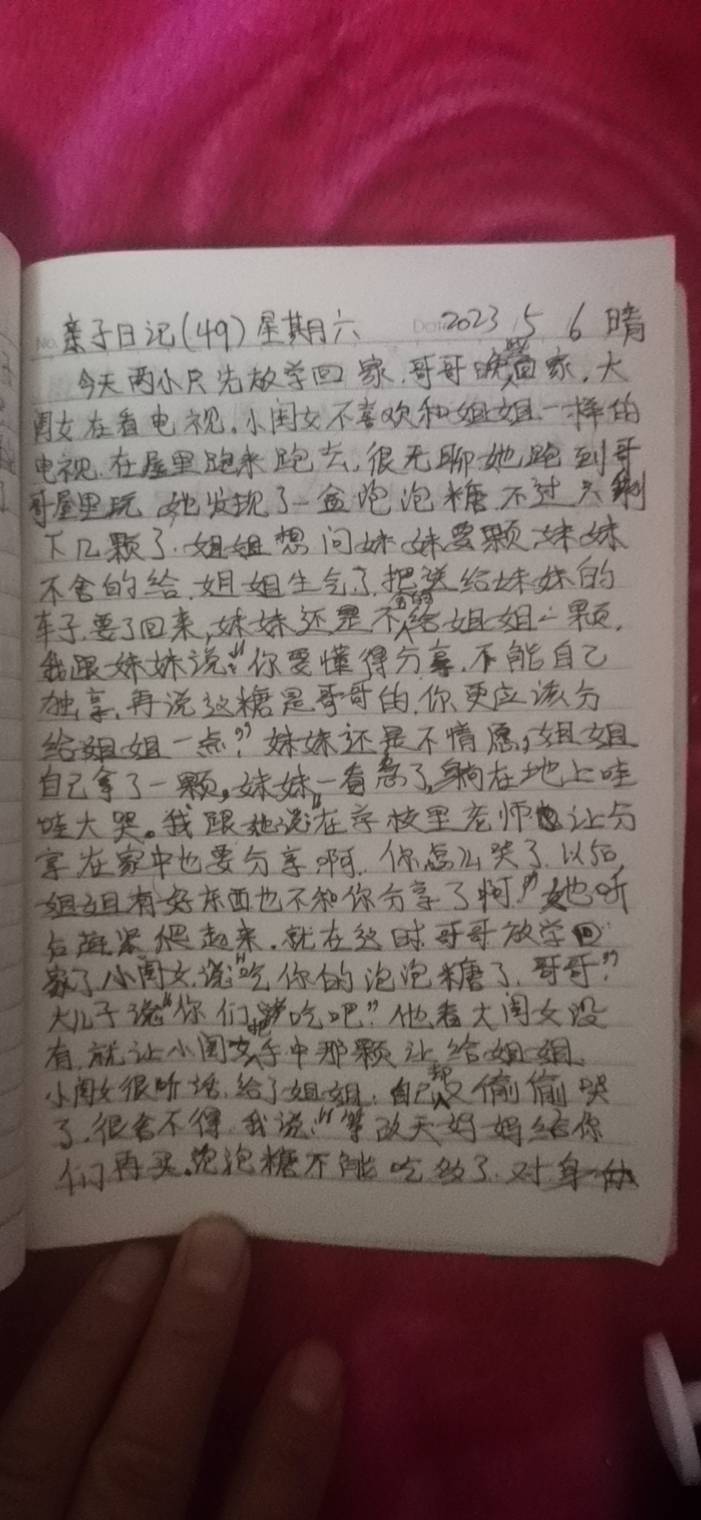 亲子日记(49)星期六 2023 5 6 晴
今天两小只先放学回家.哥哥晚回家.大
闺女在看电视.小闺女不喜欢和姐姐一样的
电视.在屋里跑来跑去.很无聊她跑到哥
哥屋里玩 她发现了一盒泡泡糖 不过只剩
下几颗了.姐姐想问妹妹要颗.妹妹
不舍的给.姐姐生气了.把送给妹妹的
车子.要了回来,妹妹还是不给姐姐一颗.
我跟妹妹说:"你要懂得分享.不能自己
独享.再说这糖是哥哥的.你更应该分
给姐姐一点?"妹妹还是不情愿,姐姐
自己拿了一颗。妹妹一看急了,躺在地上哇
哇大哭。我跟她说"在学校里老师让分
享在家中也要分享啊.你怎么哭了.以后
姐姐有好东西也不和你分享了啊?"她听
后赶紧爬起来.就在这时哥哥放学回
家了.小闺女.说"吃你的泡泡糖了.哥哥?"
大儿子说"你们吃吧"他看大闺女没
有.就让小闺女手中那颗让给姐姐.
小闺女很听话.给了姐姐.自己却又偷偷哭
了.很舍不得.我说:"等改天妈妈给你
们再买.泡泡糖不能吃多了.对身体